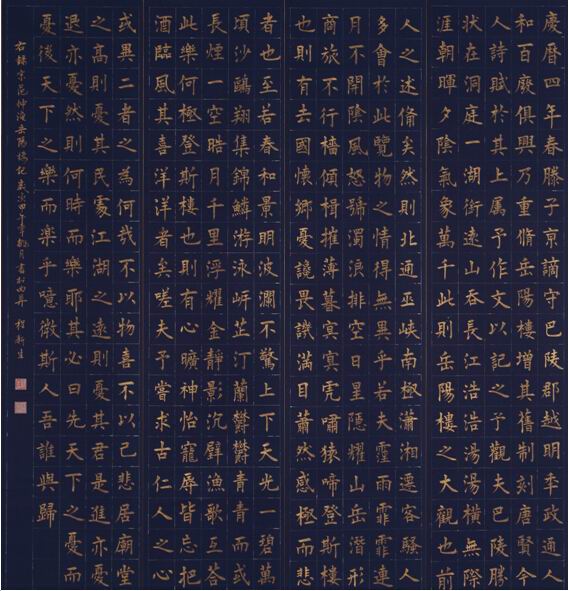 慶曆四年春滕子京謫守巴陵郡越明年政通人
和百廢俱興乃重脩岳陽樓增其舊制刻唐賢今
人詩賦於其上屬予作文以記之予觀夫巴陵勝
狀在洞庭一湖銜遠山吞長江浩浩湯湯橫無際
涯朝暉夕陰氣象萬千此則岳陽樓之大觀也前
人之述備矣然則北通巫峽南極瀟湘遷客騷人
多會於此覽物之情得無異乎若夫霪雨霏霏連
月不開陰風怒號濁浪排空日星隱耀山岳潛形
商旅不行檣傾楫摧薄暮冥冥虎嘯猿啼登斯樓
也則有去國懷鄉憂讒畏譏滿目蕭然感極而悲
者也至若春和景明波瀾不驚上下天光一碧萬
頃沙鷗翔集錦鱗游泳岸芷汀蘭鬱鬱青青而或
長煙一空皓月千里浮耀金靜影沉璧漁歌互答
此樂何極登斯樓也則有心曠神怡寵辱皆忘把
酒臨風其喜洋洋者矣嗟夫予嘗求古仁人之心
或異二者之為何哉不以物喜不以己悲居廟堂
之高則憂其民處江湖之遠則憂其君是進亦憂
退亦憂然則何時而樂耶其必曰先天下之憂而
憂後天下之樂而樂乎噫微斯人吾誰與歸
右錄宋范仲淹岳陽樓記 月書於 程新生